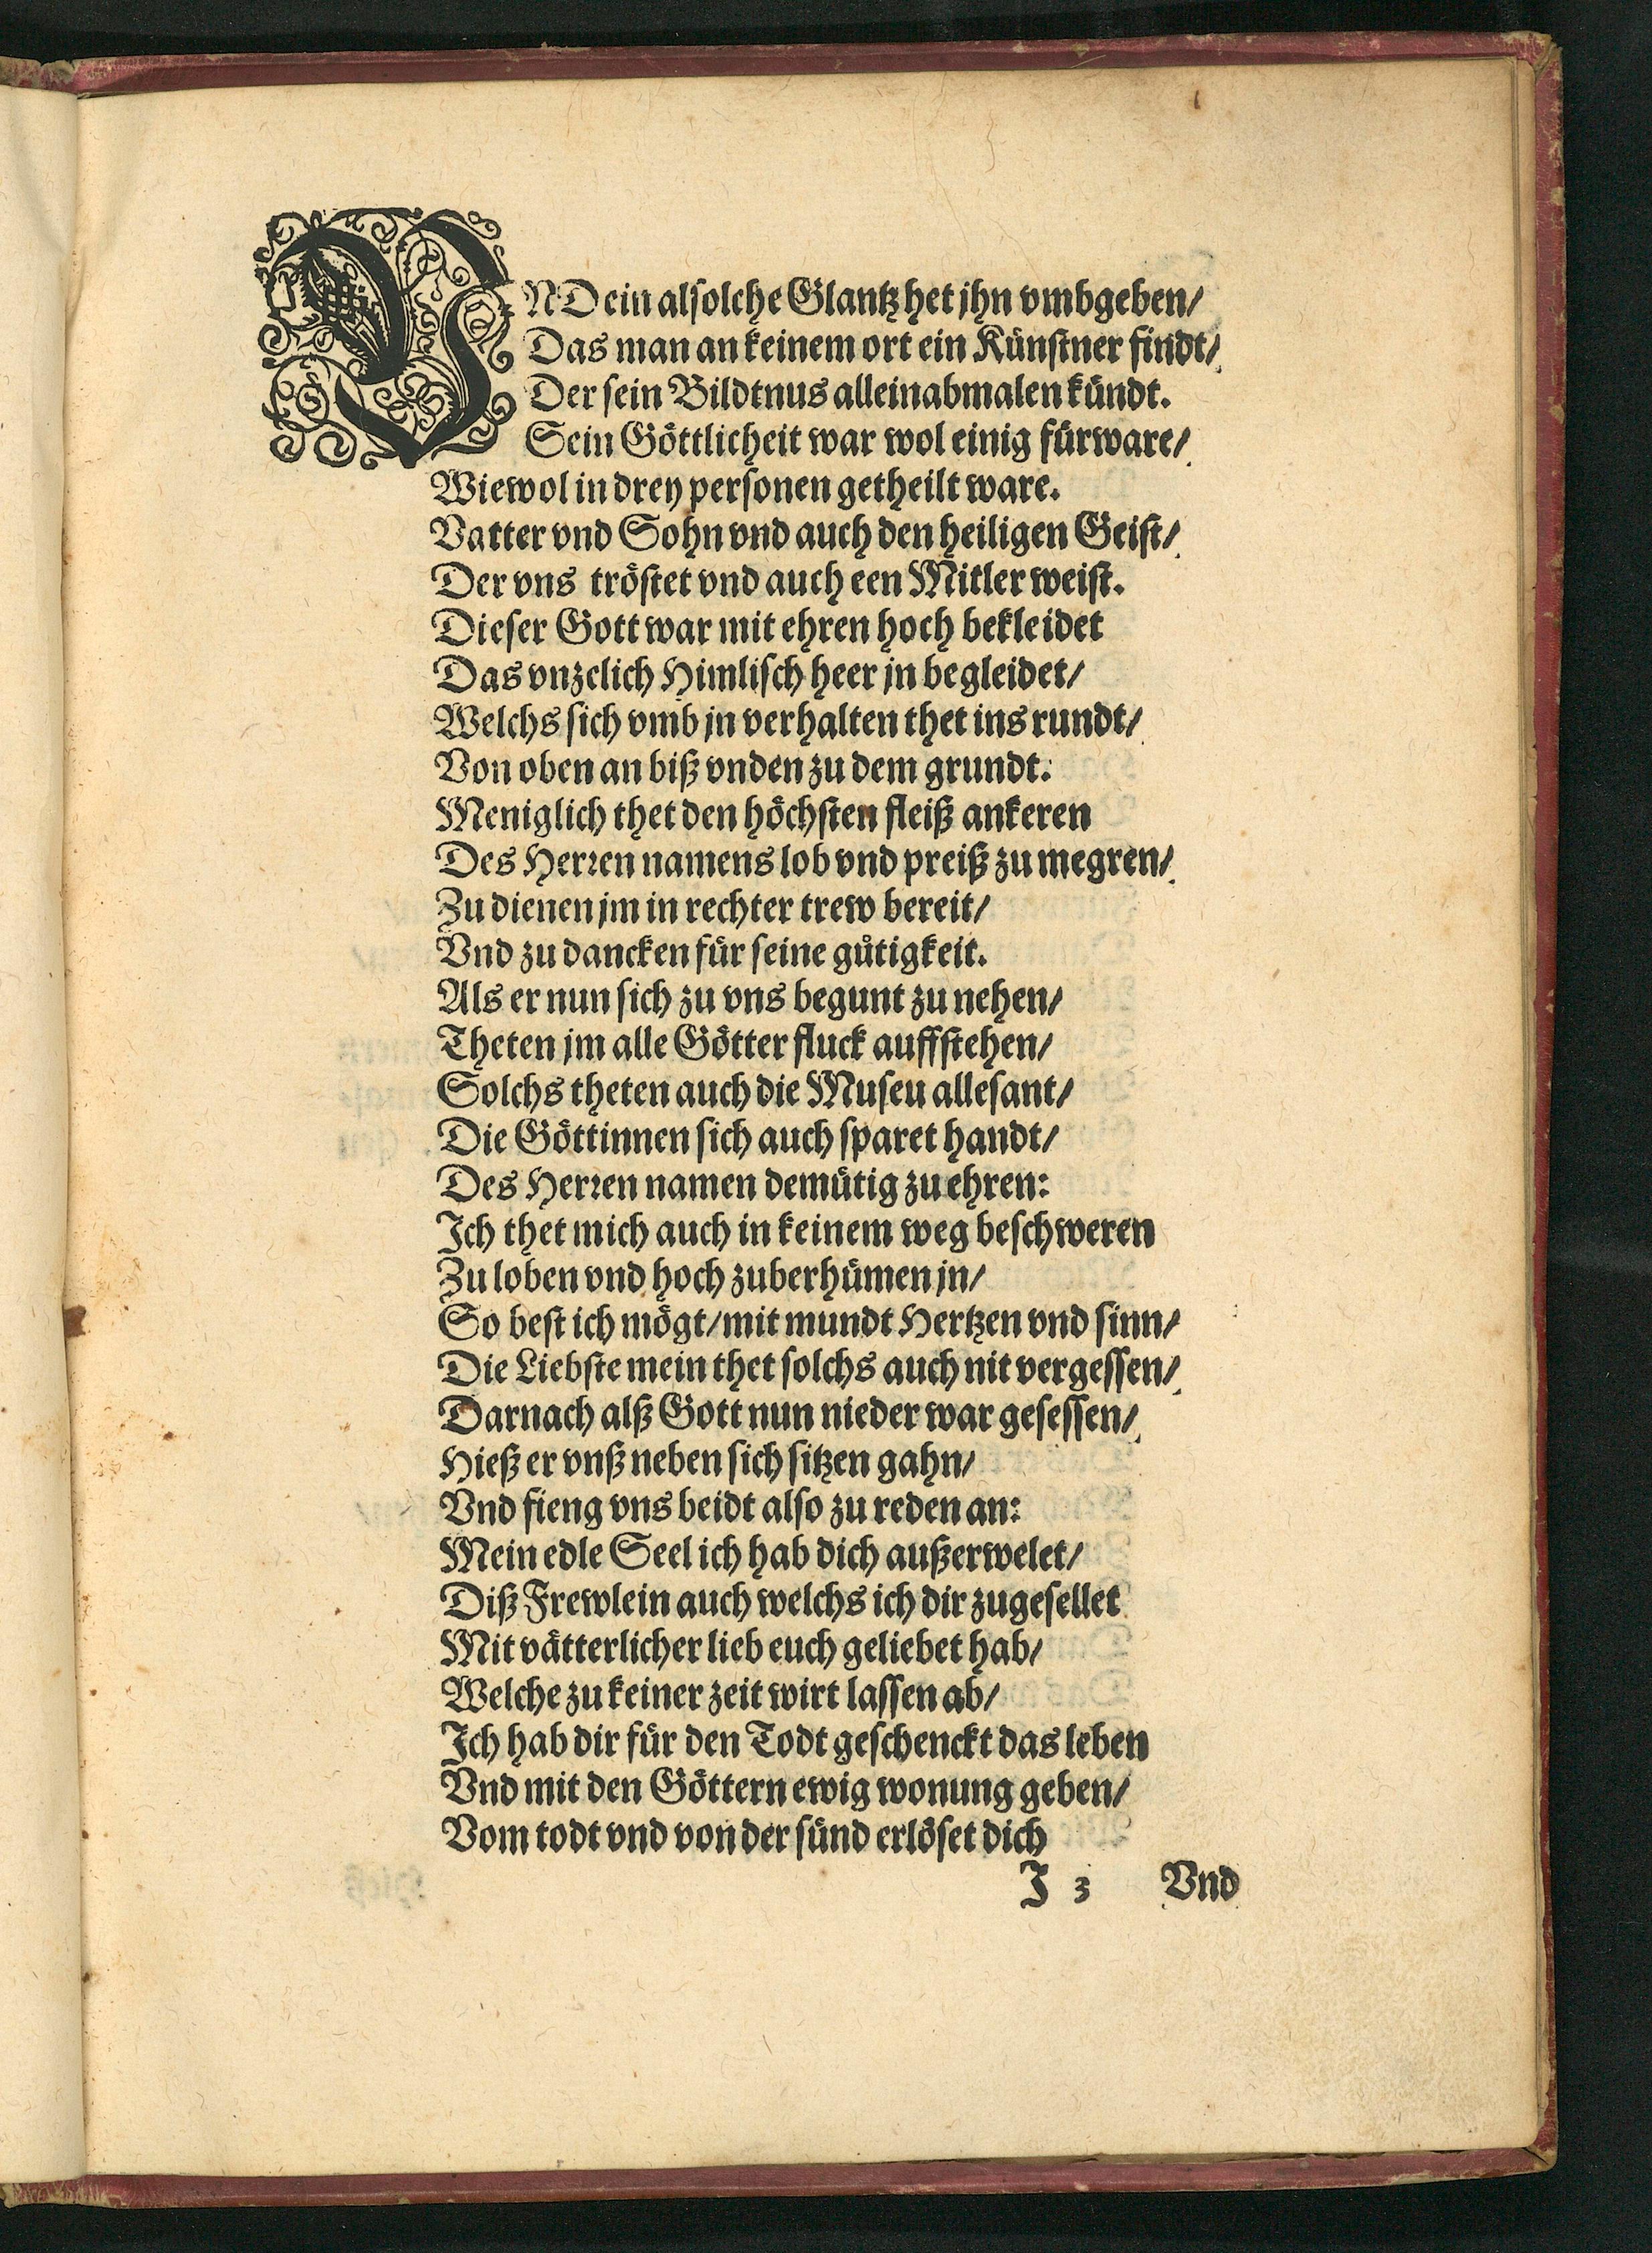 VND ein alsolche Glantz het jhn vmbgeben/
Das man an keinem ort ein Künstner findt/
Der sein Bildtnus allein abmalen kündt.
Sein Göttlicheit war wol einig fürware/
Wiewol in drey personen getheilt ware.
Vatter vnd Sohn vnd auch den heiligen Geist/
Der vns tröstet vnd auch een Mitler weist.
Dieser Gott war mit ehren hoch bekleidet
Das vnzelich Himlisch heer jn begleidet/
Welchs sich vmb jn verhalten thet ins rundt/
Von oben an biß vnden zu dem grundt.
Meniglich thet den höchsten fleiß ankeren
Des Herren namens lob vnd preiß zu megren/
Zu dienen jm in rechter trew bereit/
Vnd zu dancken für seine gütigkeit.
Als er nun sich zu vns begunt zu nehen/
Theten jm alle Götter fluck auffstehen/
Solchs theten auch die Museu allesant/
Die Göttinnen sich auch sparet handt/
Des Herren namen demütig zu ehren:
Ich thet mich auch in keinem weg beschweren
Zu loben vnd hoch zuberhümen jn/
So best ich mögt/mit mundt Hertzen vnd sinn/
Die Liebste mein thet solchs auch nit vergessen/
Darnach alß Gott nun nieder war gesessen/
Hieß er vnß neben sich sitzen gahn/
Vnd fieng vns beidt also zu reden an:
Mein edle Seel ich hab dich außerwelet/
Diß Frewlein auch welchs ich dir zugesellet
Mit vätterlicher lieb euch geliebet hab/
Welche zu keiner zeit wirt lassen ab/
Ich hab dir für den Todt geschenckt das leben
Vnd mit den Göttern ewig wonung geben/
Vom todt vnd von der sünd erlöset dich
J 3 Vnd